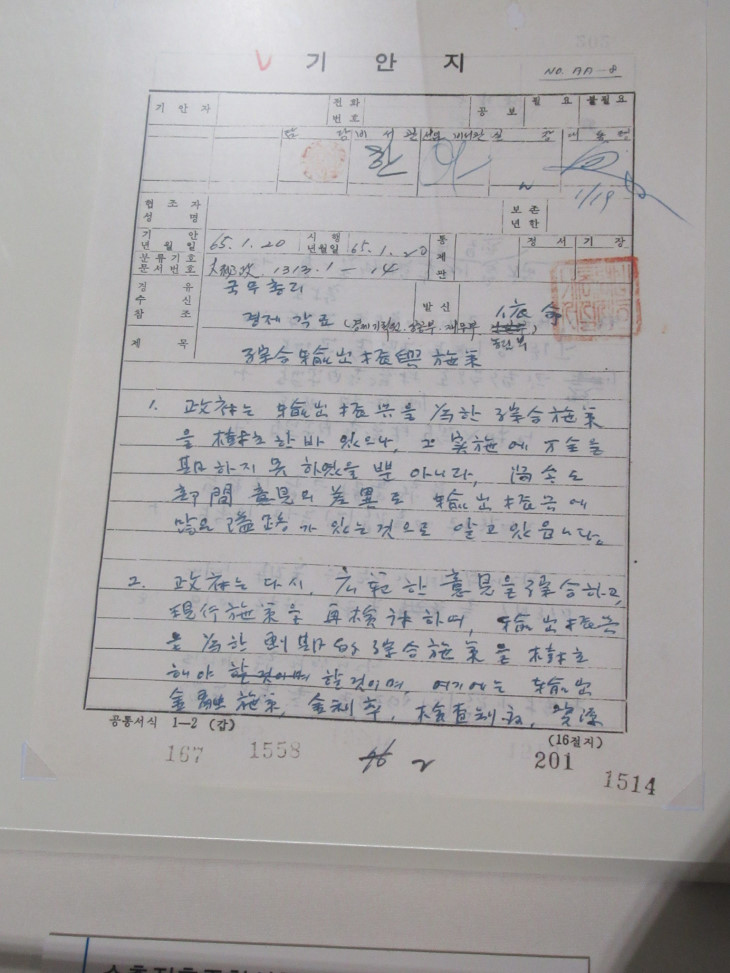 기 안 지
NO. AA-8
기 안 자
전화
번호
공 보
필 요
불필요
담 당
비 서 관
실 장
대 통 령
1/19
협 조 자
성 명
보 존
년 한
기 안
년 월 일
65. 1. 20
시 행
년월일
65. 1. 20
통
제
관
정 서
기 장
분류기호
문서번호
1313.1-14
경 유
수 신
참 조
국무총리
경제 각료
발 신
제 목
綜合輸出振興施策
1. 政府는 輸出振興을 爲한 綜合施策
을 樹立한바 있으나, 그 實施에 万全을
期하지 못하였을 뿐 아니라,
部間 意見의 差異로 輸出振興에
많은 隘路가 있는것으로 알고 있읍니다.
2. 政府는 다시, 広範한 意見을 綜合하고,
現行施策을 再検討하며, 輸出振興
을 爲한 劃期的 綜合施策을 樹立
해야 할것이며 할것이며 여기에는 輸出
金融施策, 金利率, 検査制度,
공통서식 1-2 (갑)
(16절지)
167
1558
2
201
1514